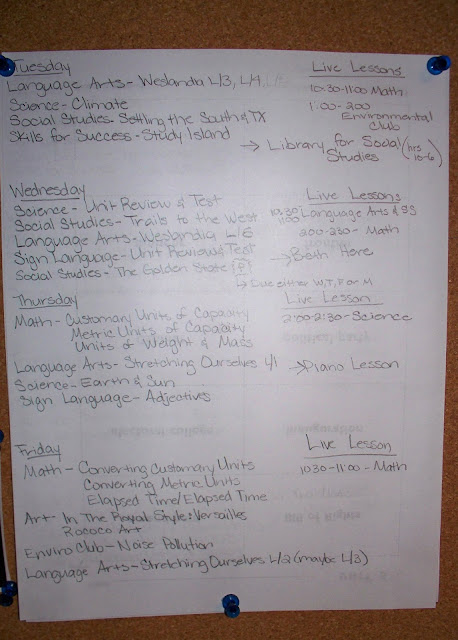 Tuesday
Live Lessons
Language Arts - Weslandia L/3, L/4, L/5
10:30-11:00 Math
Science - Climate
1:00-2:00 Environmental Club
Social Studies - Settling the South & TX
Skills for Success - Study Island
→ Library for Social Studies (hrs 10-6)
Wednesday
Live Lessons
Science - Unit Review & Test
Social Studies - Trails to the West
10:30 11:00 Language Arts & SS
Language Arts - Weslandia L/6
2:00-2:30 - Math
Sign Language - Unit Review & Test
→ Beth Here
Social Studies - The Golden State
→ Due either W, T, F or M
Thursday
Live Lesson
Math - Customary Units of Capacity
2:00-2:30 - Science
Metric Units of Capacity
Units of Weight & Mass
Language Arts - Stretching Ourselves L/1
→ Piano Lesson
Science - Earth & Sun
Sign Language - Adjectives
Friday
Live Lesson
Math - Converting Customary Units
10:30-11:00 - Math
Converting Metric Units
Elapsed Time/Elapsed Time
Art - In The Royal Style: Versailles
Rococo Art
Enviro Club - Noise Pollution
Language Arts - Stretching Ourselves L/2 (maybe L/3)
electoral college
inauguration
political party
Bill of Rights